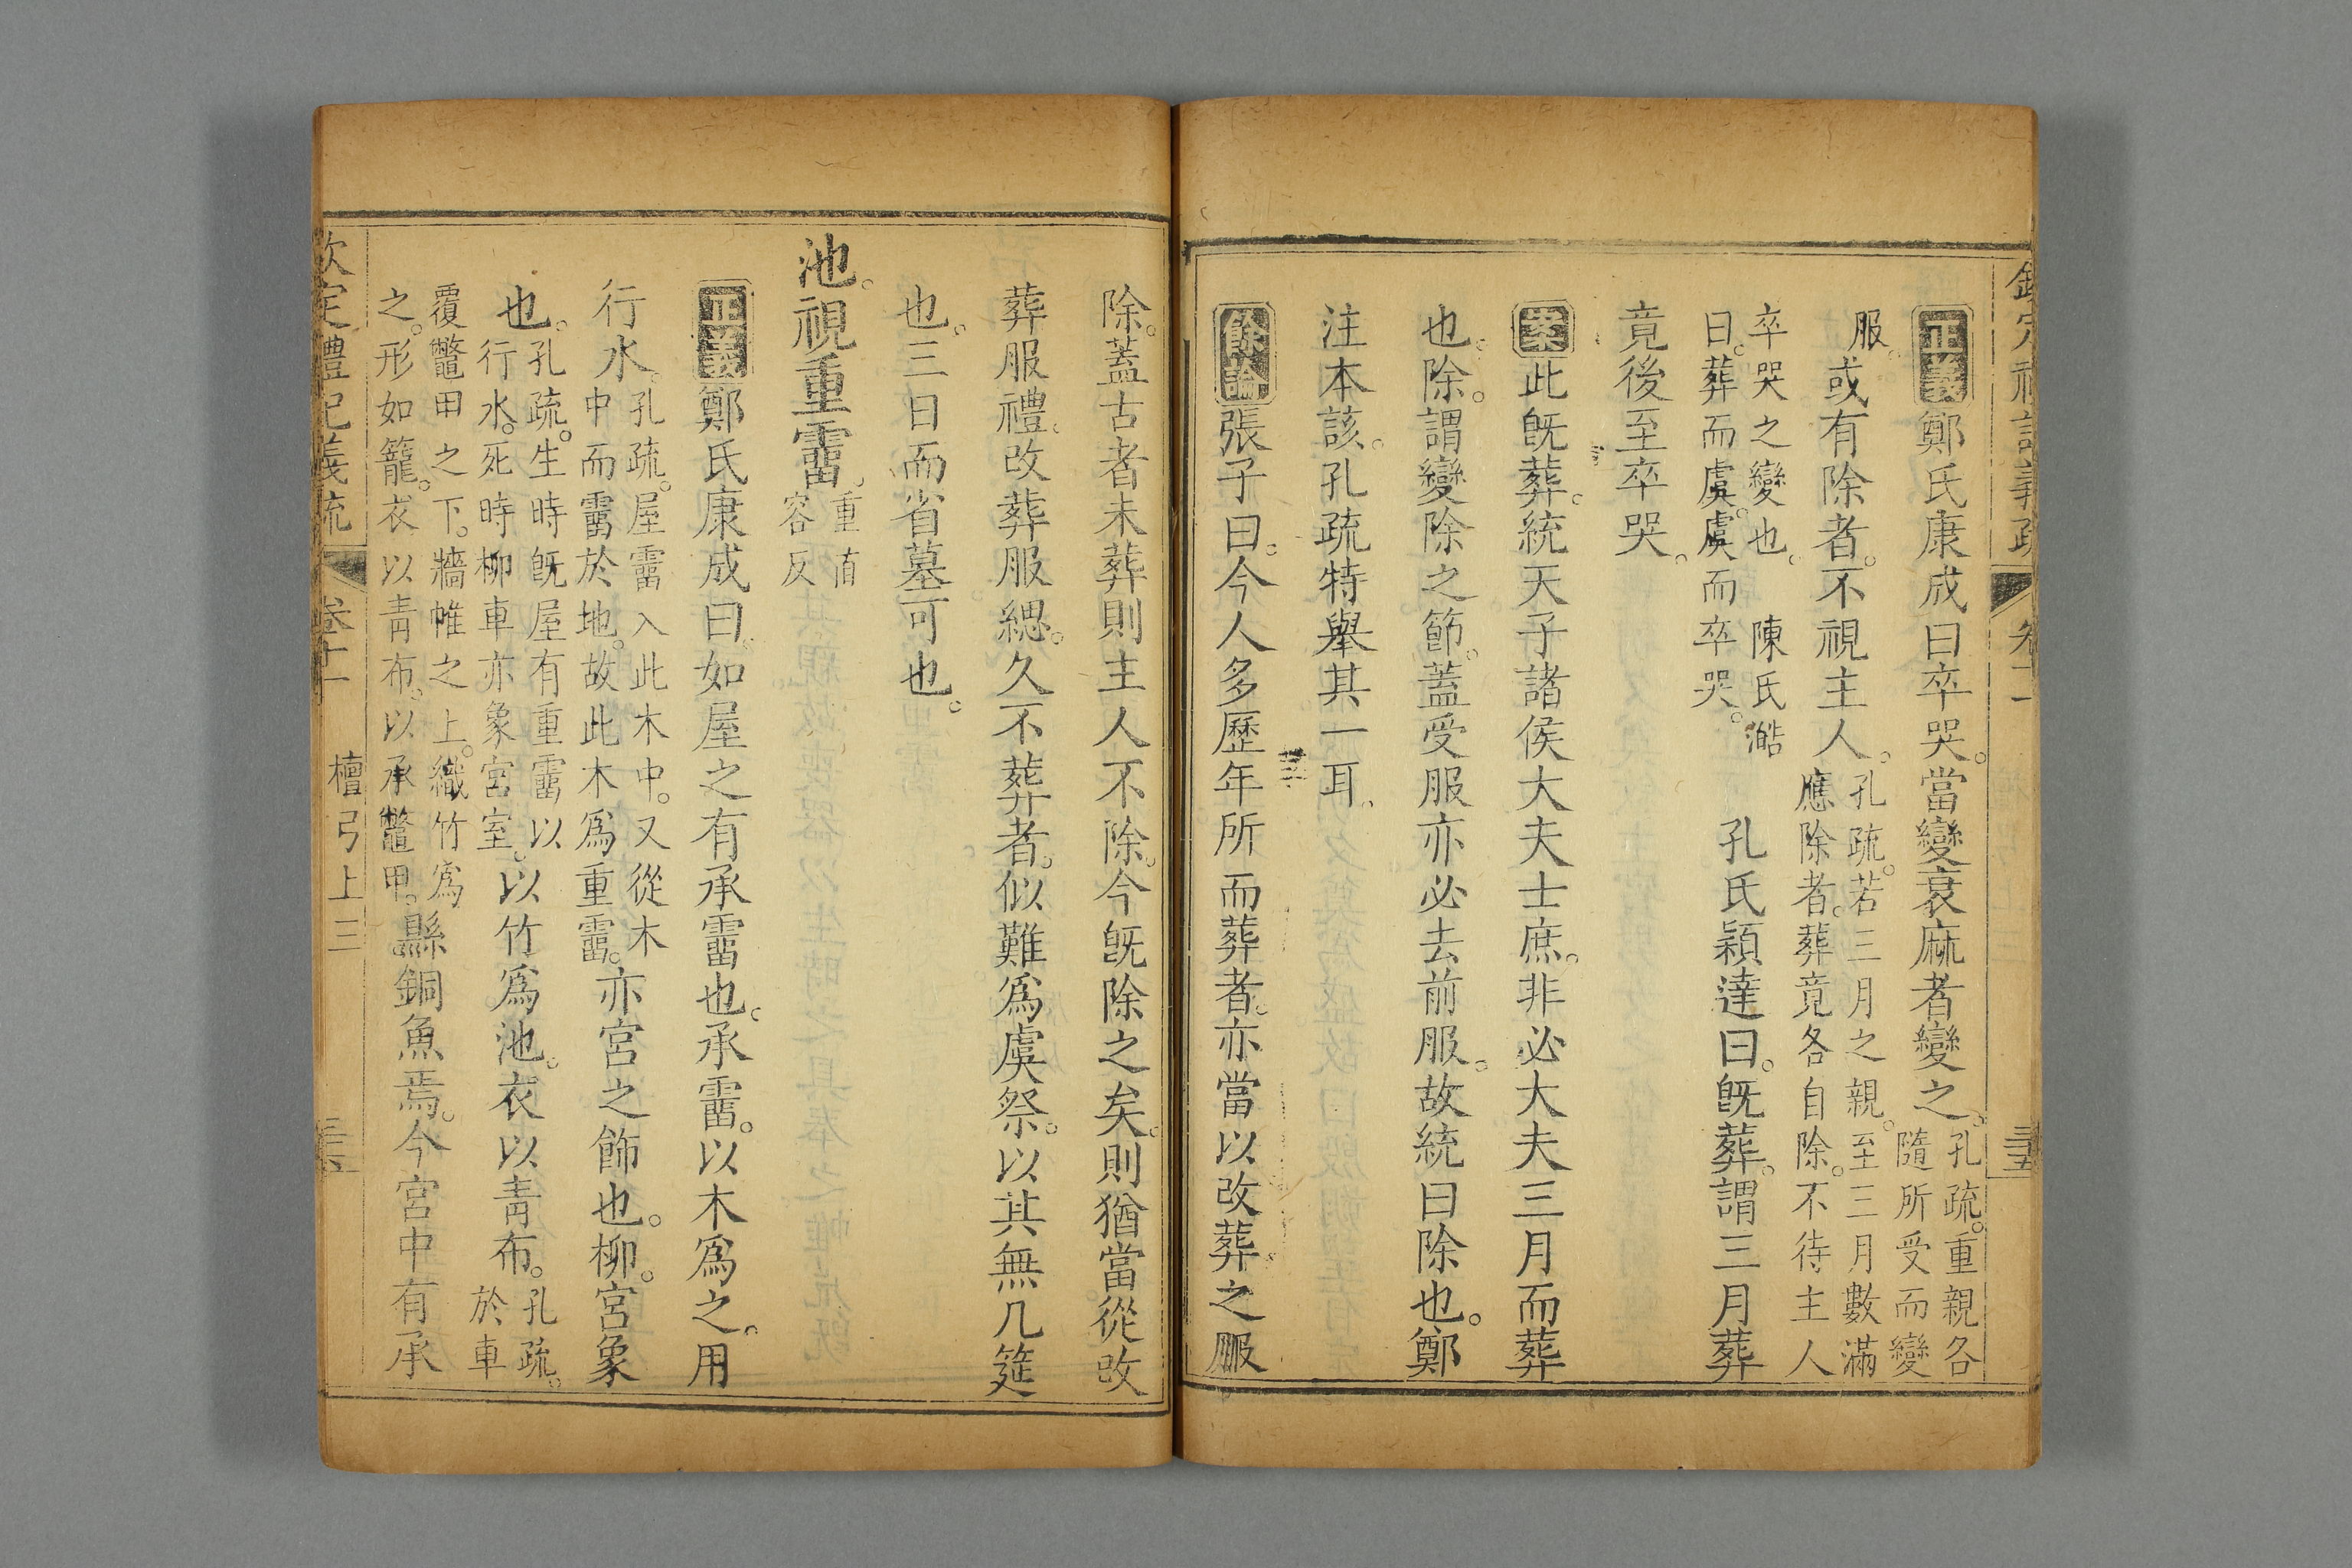 欽定禮記義疏 卷十一 三五
正義鄭氏康成曰卒哭。當變衰麻者變之。孔疏。重親各隨所受而變
服。或有除者。不視主人。孔疏。若三月之親。至三月數滿應除者。葬竟各自除。不待主人
卒哭之變也。陳氏澔曰。葬而虞。虞而卒哭。孔氏穎達曰。旣葬。謂三月葬
竟後至卒哭。
案此旣葬。統天子諸侯大夫士庶。非必大夫三月而葬
也。除。謂變除之節。蓋受服亦必去前服。故統曰除也。鄭
注本該。孔疏特舉其一耳。
餘論張子曰。今人多歷年所而葬者。亦當以改葬。之服
除。蓋古者未葬則主人不除。今旣除之矣。則猶當從改
葬服禮。改葬服緦。久不葬者。似難爲虞祭。以其無几筵
也。三日而省墓可也。
池。視重霤。重直容反
正義鄭氏康成曰。如屋之有承霤也。承霤。以木爲之。用
行水。孔疏。屋霤入此木中。又從木中而霤於地。故此木爲重霤。亦宮之飾也。柳。宮象
也。孔疏。生時旣屋有重霤以行水。死時柳車亦象宮室。以竹爲池。衣以靑布。孔疏。於車
覆鼈甲之下。牆帷之上。織竹爲之。形如籠。衣以靑布。以承鼈甲。縣銅魚焉。今宮中有承
欽定禮記義疏 卷十一 檀弓上三 三五